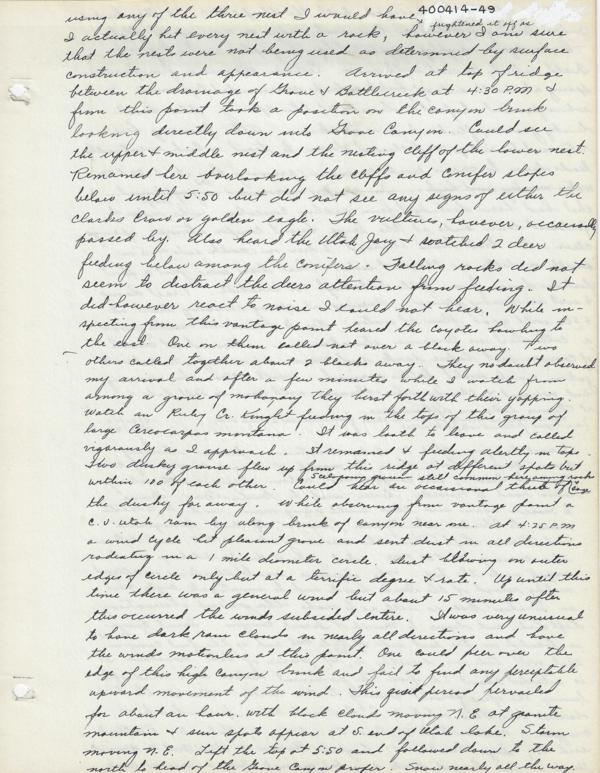 400414-49
using any of the three nest I would have frightened it off as
I actually hit every nest with a rock, however I am sure
that the nests were not being used as determined by surface
construction and appearance. Arrived at top of ridge
between the drainage of Grove & Battlecreek at 4:30 P.M &
from this point took a position on the canyon brink
looking directly down into Grove Canyon. Could see
the upper & middle nest and the nesting cliff of the lower nest.
Remained here overlooking the cliffs and conifer slopes
below until 5:50 but did not see any signs of either the
Clarks Crow or golden eagle. The vultures, however, occasionally
passed by. Also heard the Utah Jay & watched 2 deer
feeding below among the conifers. Falling rocks did not
seem to distract the deers attention from feeding. It
did however react to noise I could not hear. While in-
specting from this vantage point heared the coyotes howling to
the east. One on them called not over a block away. Two
others called together about 2 blocks away. They no doubt observed
my arrival and after a few minutes while I watch from
among a grove of mahonany they burst forth with their yapping.
Watch an Ruby Cr. Kinglet feeding in the tops of this group of
large Cercocarpus montana. It was loath to leave and called
vigorously as I approach. It remained & feeding alertly in tops.
Two dusky grouse flew up from this ridge at different spots but
within 100 of each other. Could hear an occasional of
the dusky far away. While observing from vantage point a
C.V. Utah ran by along brink of canyon near me. At 4:25 P.M
a wind cycle hit pleasant grove and sent dust in all directions
radiating in a 1 mile diameter circle. Dust blowing on outer
edges of circle only but at a terrific degree & rate. Up until this
time there was a general wind but about 15 minutes after
this occurred the winds subsided entire. It was very unusual
to have dark rain clouds in nearly all directions and have
the winds motionless at this point. One could peer over the
edge of this high canyon brink and fail to find any perceptable
upward movement of the wind. This quiet period pervailed
for about an hour. with black clouds moving N.E. at granite
mountain & sun spots appear at S. end of Utah Lake. Storm
moving N.E. Left the top at 5:50 and followed down to the
north to head of the Grove Canyon proper. Snow nearly all the way.